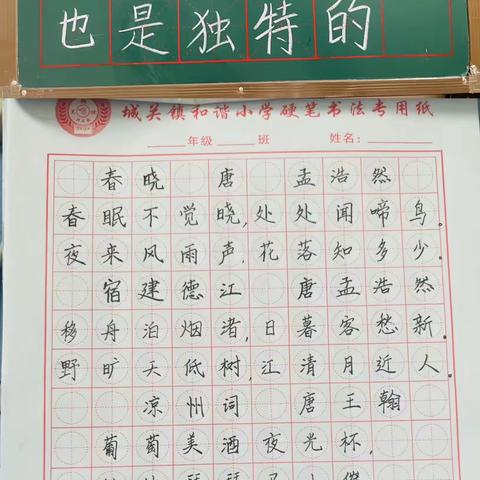 也是独特的
城关镇和谐小学硬笔书法专用纸
年级 班 姓名:
春晓 唐 孟浩然
春眠不觉晓,处处闻啼鸟。
夜来风雨声,花落知多少。
宿建德江 唐孟浩然
移舟泊烟渚,日暮客愁新。
野旷天低树,江清月近人。
凉州词 唐王翰
葡萄美酒夜光杯,